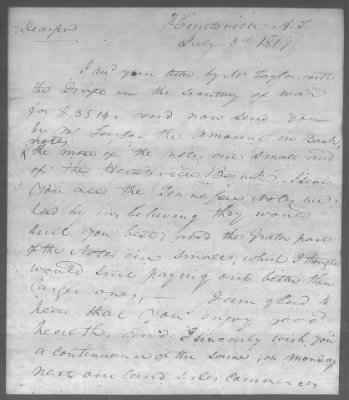 Huntsville A.T.
Dear
July 3rd 1819
I recd your letter by Mr Taylor with
the Drafts on the Secretary of war
for $3514. and now send you
by Mr Taylor the amount in Bank
notes.
the most of the notes are small and
of the Huntsville Bank. I send
you all the Tennessee Notes we
had by us, believing they would
suit you best; and the Grater part
of the Notes are smaler, which I thought
would suit paying out better then
larger ones, — I am glad to
hear that you enjoy good
health, and I sincerly wish you
a continuance of the same, on monday
next our land sales commences